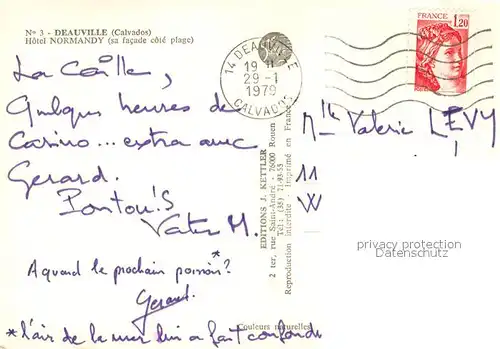 N° 3 - DEAUVILLE (Calvados)
Hôtel NORMANDY (sa façade côté plage)
La Caille,
Quelques heures de
Casino... extra avec
Gerard.
14 DEAUVILLE
19 H
29-1
1979
CALVADOS
FRANCE
1,20
Mlle Valerie LEVY
11
W
EDITIONS J. KETTLER
2 ter, rue Saint-André - 76000 Rouen
Tél : (35) 71-93-55
Reproduction interdite Imprimé en France
privacy protection
DELCAMPE
A quand le prochain poisson*?
Gerard.
Couleurs naturelles
*l'air de la mer lui a fait confondre